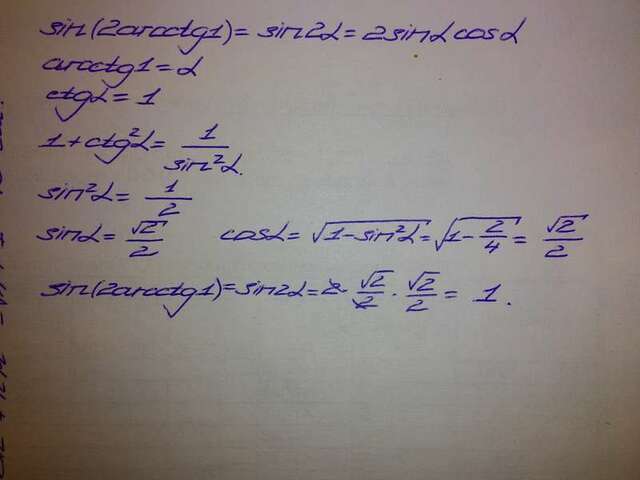 sin(2arcctg1) = sin2α = 2sinα cosα
arcctg1 = α
ctgα = 1
1 + ctg²α = 1/sin²α.
sin²α = 1/2
sinα = √2/2 cosα = √(1-sin²α) = √(1-2/4) = √2/2
sin(2arcctg1) = sin2α = 2·√2/2·√2/2 = 1.